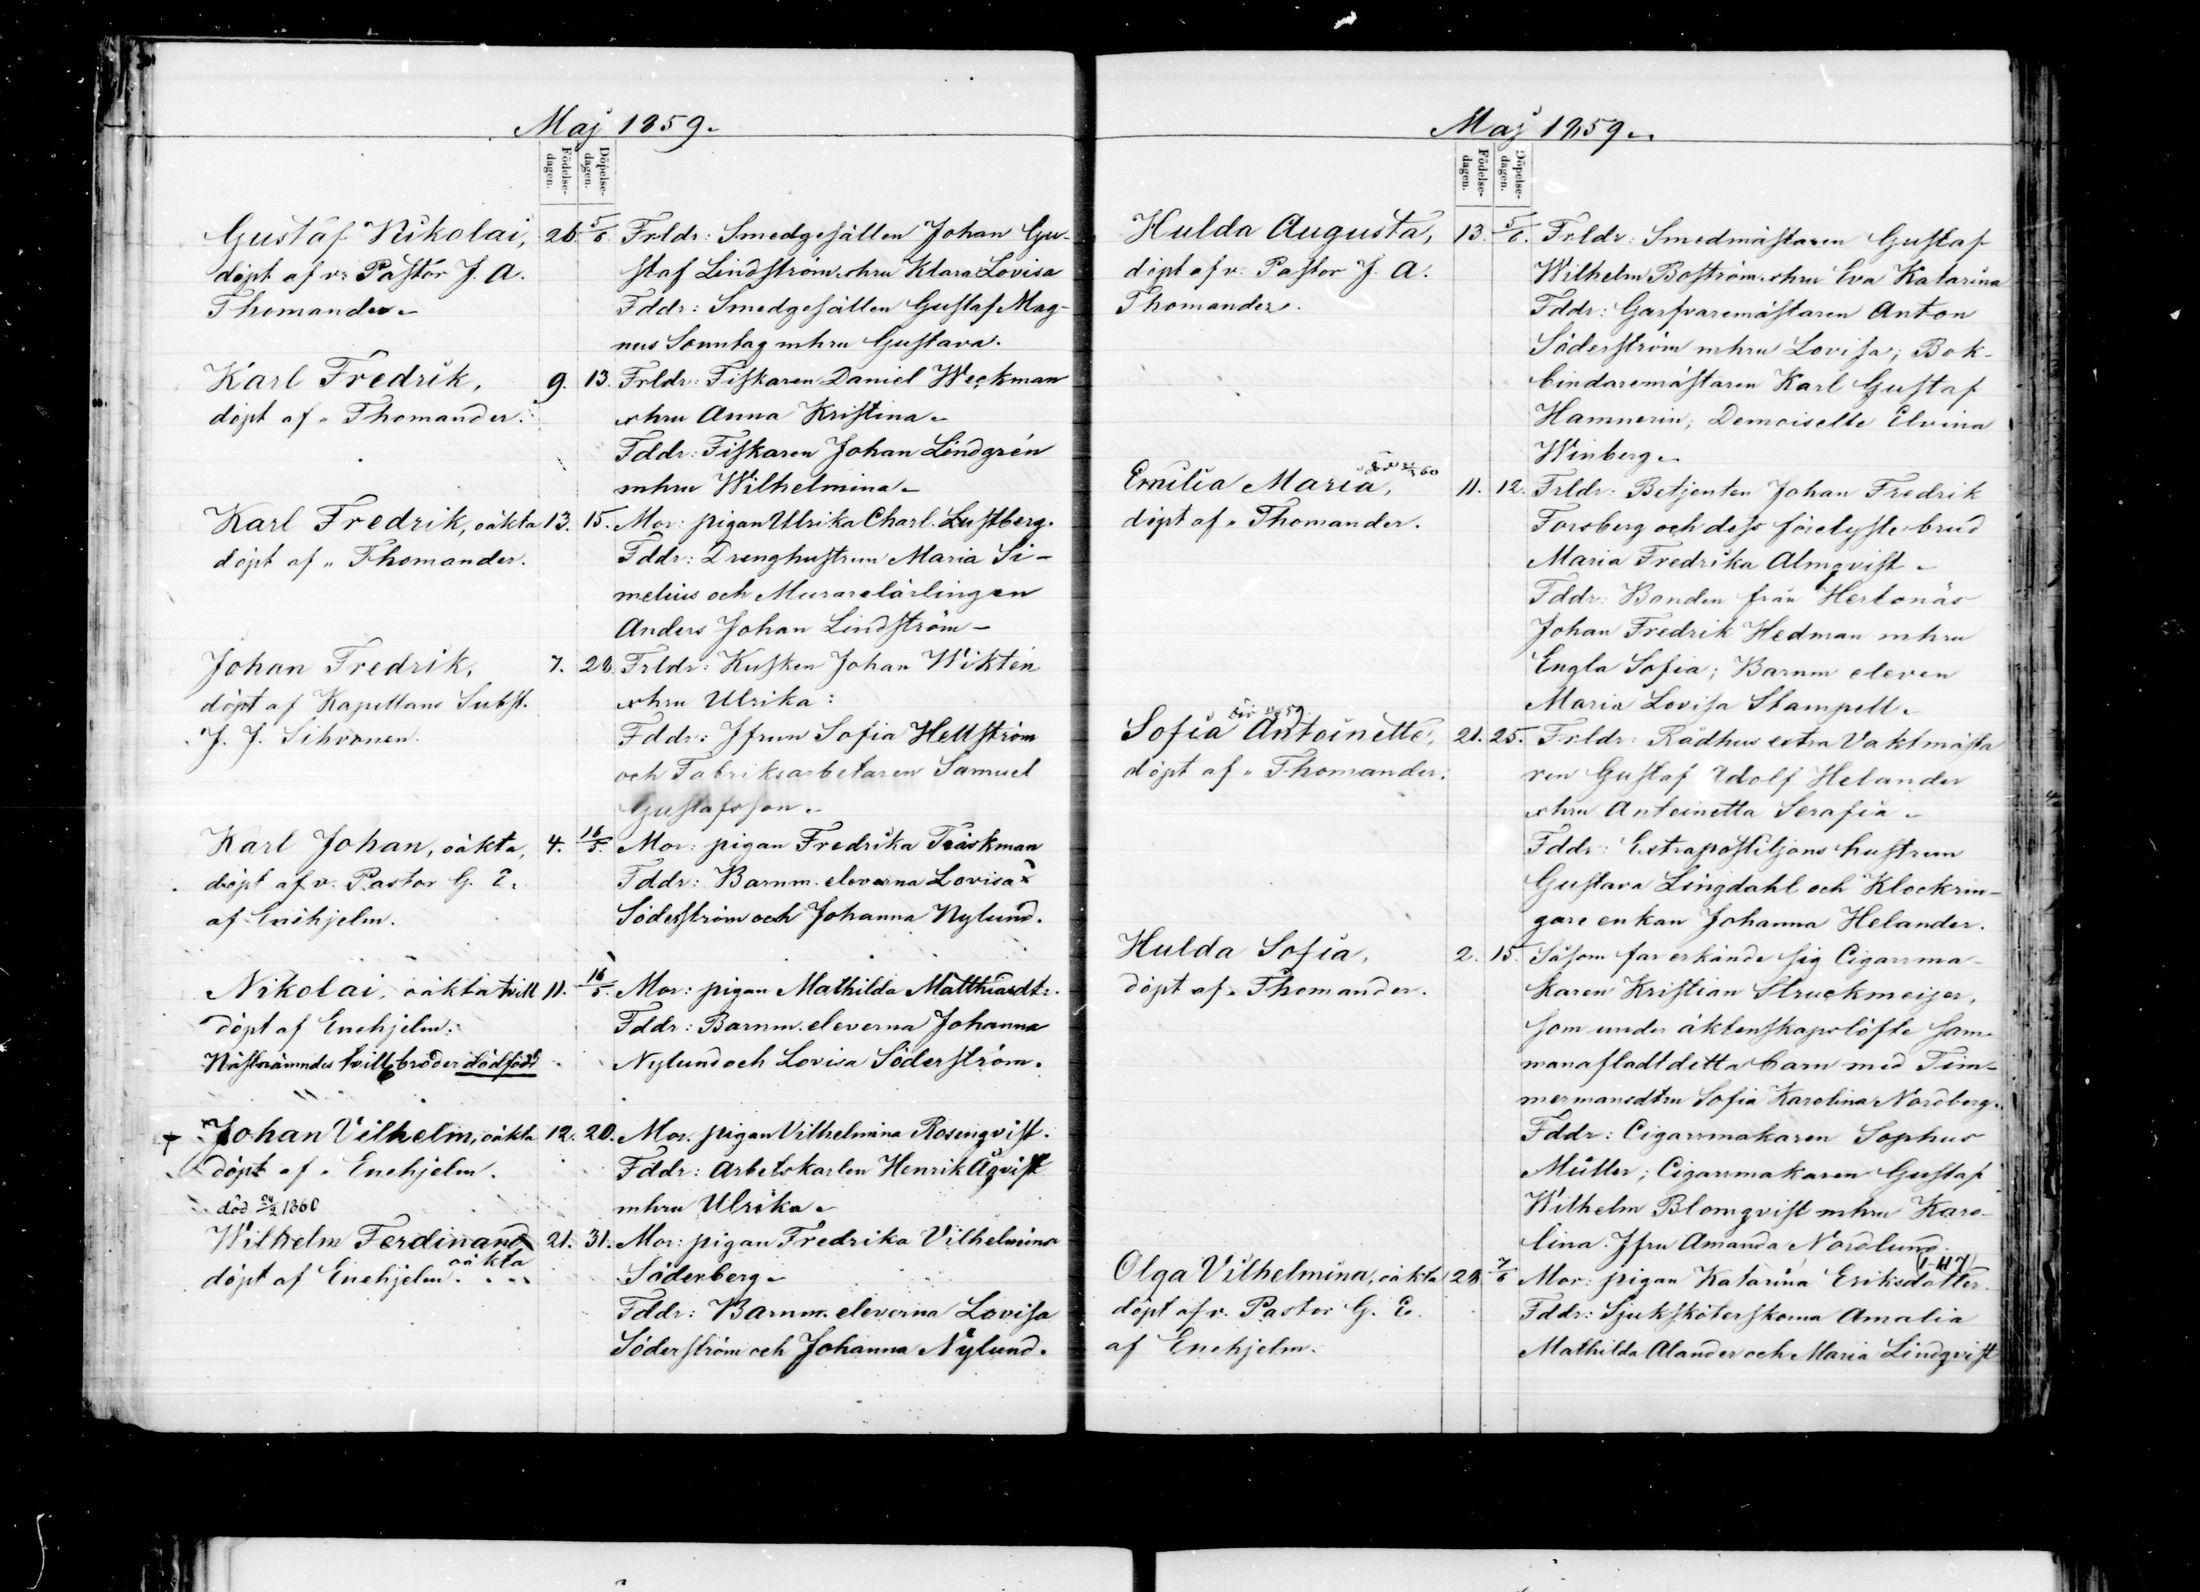 Maj 1859.
Födelse-dagen.
Döpelse-dagen.
Gustaf Nikolai, 26. 5/6. Frldr: Smedgesällen Johan Gu-
döpt af v. Pastor J. A. staf Lindström o hru Klara Lovisa
Thomander. Fddr: Smedgesällen Gustaf Mag-
nus Sonntag m hru Gustava.
Karl Fredrik, 9. 13. Frldr: Fiskaren Daniel Weckman
döpt af " Thomander. o hru Anna Kristina.
Fddr: Fiskaren Johan Lindgrén
m hru Wilhelmina.
Karl Fredrik, oäkta 13. 15. Mor: pigan Ulrika Charl. Lustberg.
döpt af " Thomander. Fddr: Drenghustrun Maria Si-
melius och Murarelärlingen
Anders Johan Lindström.
Johan Fredrik, 7. 28. Frldr: Kusken Johan Wiktén
döpt af Kapellans Subst. o hru Ulrika:
J. J. Sihvonen. Fddr: Jfrun Sofia Hellström
och Fabriksarbetaren Samuel
Gustafsson.
Karl Johan, oäkta, 4. 16/5. Mor: pigan Fredrika Träskman
döpt af v. Pastor G. E. Fddr: Barnm. eleverna Lovisa
af Enehjelm. Söderström och Johanna Nylund.
Nikolai, oäkta tvill 11. 16/5. Mor: pigan Mathilda Matthiasdtr.
döpt af Enehjelm. Fddr: Barnm. eleverna Johanna
Nästnämndes tvillbroder dödfödd. Nylund och Lovisa Söderström.
Johan Vilhelm, oäkta 12. 20. Mor. pigan Vilhelmina Rosenqvist.
döpt af " Enehjelm. Fddr: Arbetskarlen Henrik Åqvist
död 24/2 1860 m hru Ulrika.
Wilhelm Ferdinand 21. 31. Mor: pigan Fredrika Vilhelmina
oäkta
döpt af Enehjelm. Söderberg.
Fddr: Barnm. eleverna Lovisa
Söderström och Johanna Nylund.
Maj 1859.
Födelse-dagen.
Döpelse-dagen.
Hulda Augusta, 13. 5/6. Frldr: Smedmästaren Gustaf
döpt af v. Pastor J. A. Wilhelm Boström o hru Eva Katarina
Thomander. Fddr: Garfvaremästaren Anton
Söderström m hru Lovisa; Bok-
bindaremästaren Karl Gustaf
Hamnerin; Demoiselle Elvina
Winberg.
Emilia Maria, 11. 12. Frldr: Betjenten Johan Fredrik
döpt af " Thomander. Forsberg och dess förelyste brud
Maria Fredrika Almqvist.
Fddr: Bonden från Hertonäs
Johan Fredrik Hedman m hru
Engla Sofia; Barnm eleven
Maria Lovisa Stampell.
Sofia Antoinette, 21. 25. Frldr: Rådhus extra Vaktmästa
döpt af " Thomander. ren Gustaf Adolf Helander
o hru Antoinetta Serafia.
Fddr: Extrapostiljons hustrun
Gustava Lingdahl och Klockrin-
gare enkan Johanna Helander.
Hulda Sofia, 2. 15. Såsom far erkände sig Cigarrma-
döpt af " Thomander. karen Kristian Struckmeijer,
som under äktenskapslöfte sam-
manafladt detta barn med Tim-
mermansdtrn Sofia Karolina Nordberg.
Fddr: Cigarrmakaren Sophus
Müller; Cigarrmakaren Gustaf
Wilhelm Blomqvist m hru Karo-
lina. Jfru Amanda Nordlund.
Olga Vilhelmina, oäkta 28. 7/6 Mor: pigan Katarina Eriksdotter.
döpt af v. Pastor G. E. Fddr: Sjuksköterskorna Amalia
af Enehjelm. Mathilda Alander och Maria Lindqvist